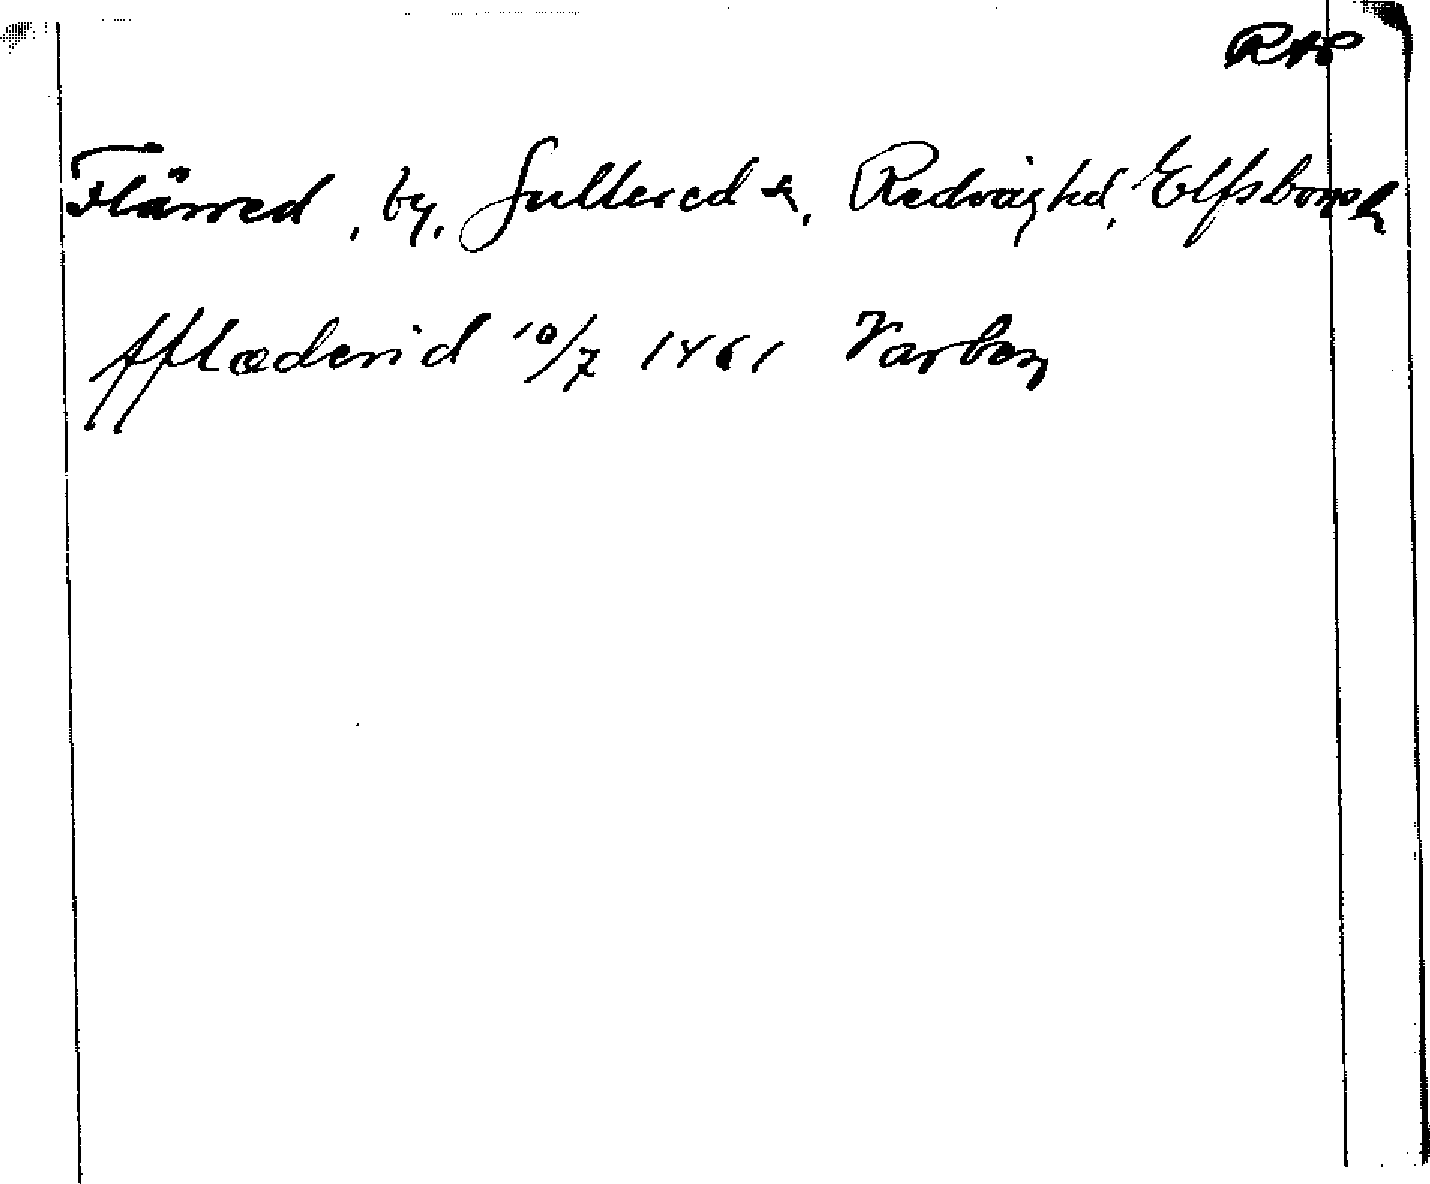 RAP
Flärred, by, Gullered s., Redvägs hd, Elfsborgs l.
ffladerid 10/7 1461 Varberg